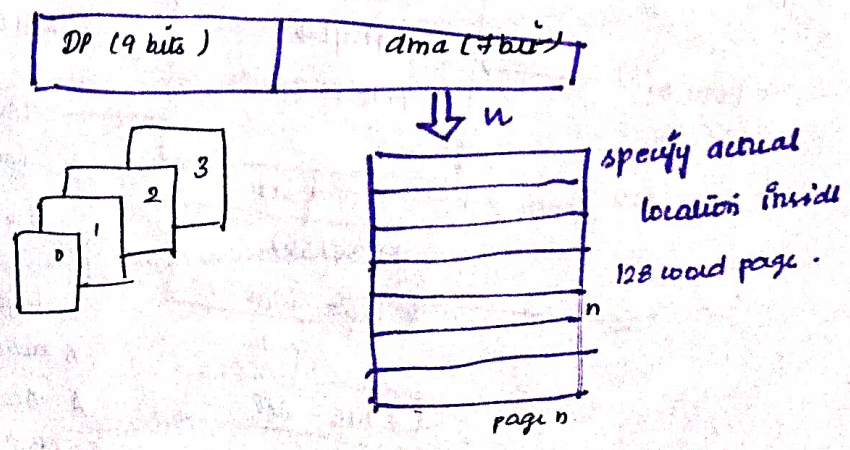 DP (9 bits) dma (7bit)
n
specify actual
location inside
128 word page.
3
2
1
0
n
page n